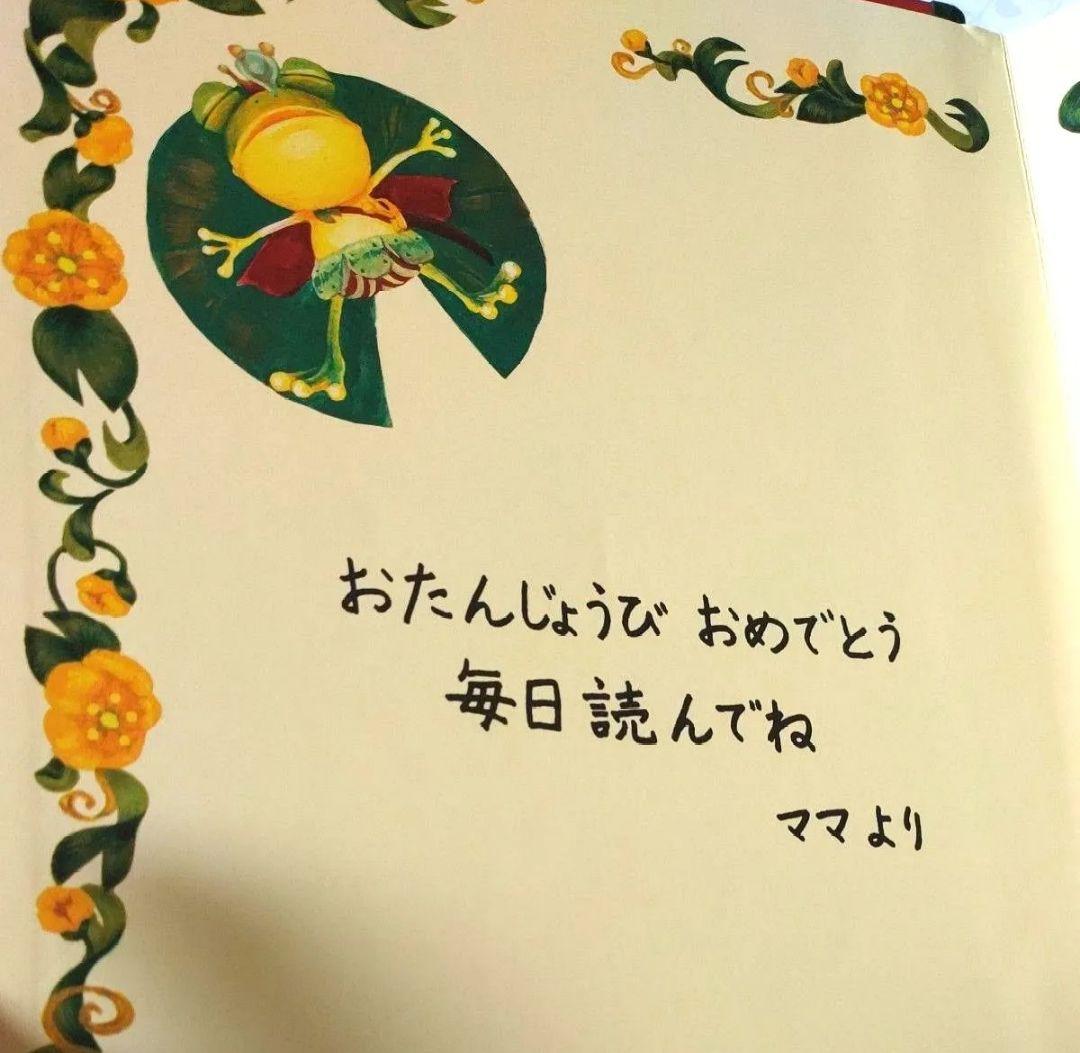 おたんじょうび おめでとう
毎日読んでね
ママより